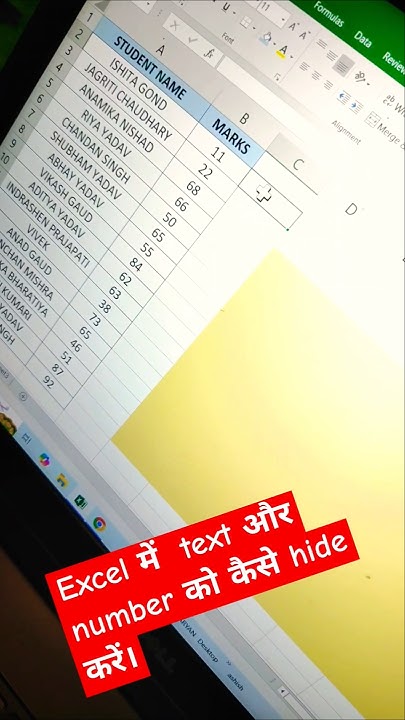 Formulas Data Review
11
Font
Alignment
Merge
fx
A B C D
1 STUDENT NAME MARKS
2 ISHITA GOND 11
3 JAGRITI CHAUDHARY 22
4 ANAMIKA NISHAD 68
5 RIYA YADAV 66
6 CHANDAN SINGH 50
7 SHUBHAM YADAV 65
8 ABHAY YADAV 55
9 VIKASH GAUD 84
10 ADITYA YADAV 62
INDRASHEN PRAJAPATI 63
VIVEK 38
ANAD GAUD 73
NCHAN MISHRA 65
KA BHARATIYA 46
KUMARI 51
YADAV 87
NGH 92
Excel में text और
number को कैसे hide
करें।
Desktop
ashish